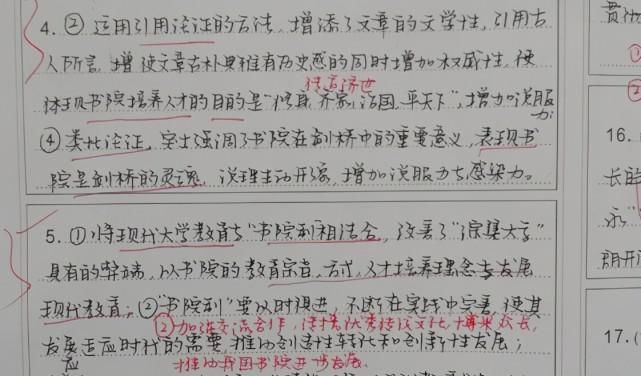 4. ② 运用引用论证的方法,增添了文章的文学性,引用古
人所言,增使文章古朴典雅有历史感的同时增加权威性,使
传言济世
体现书院培养人才的目的是“修身、齐家、治国、平天下”,增加说服
力
④ 类比论证,突出强调了书院在剑桥中的重要意义,表现书
院是剑桥的灵魂,说理生动形象,增加说服力与感染力。
5. ①将现代大学教育与“书院制”相结合,改善了“大学”
具有的弊端,以书院的教育宗旨、方式、人才培养理念去发展
现代教育;②“书院制”要以时俱进,不断在实践中完善,使其
②加强交流合作,传承优秀传统文化,博采众长,
发展适应时代的需要,推动创造性转化和创新性发展;
推动我国书院进一步发展.
应
贯彻
①
②
16.
长
永”
17.(